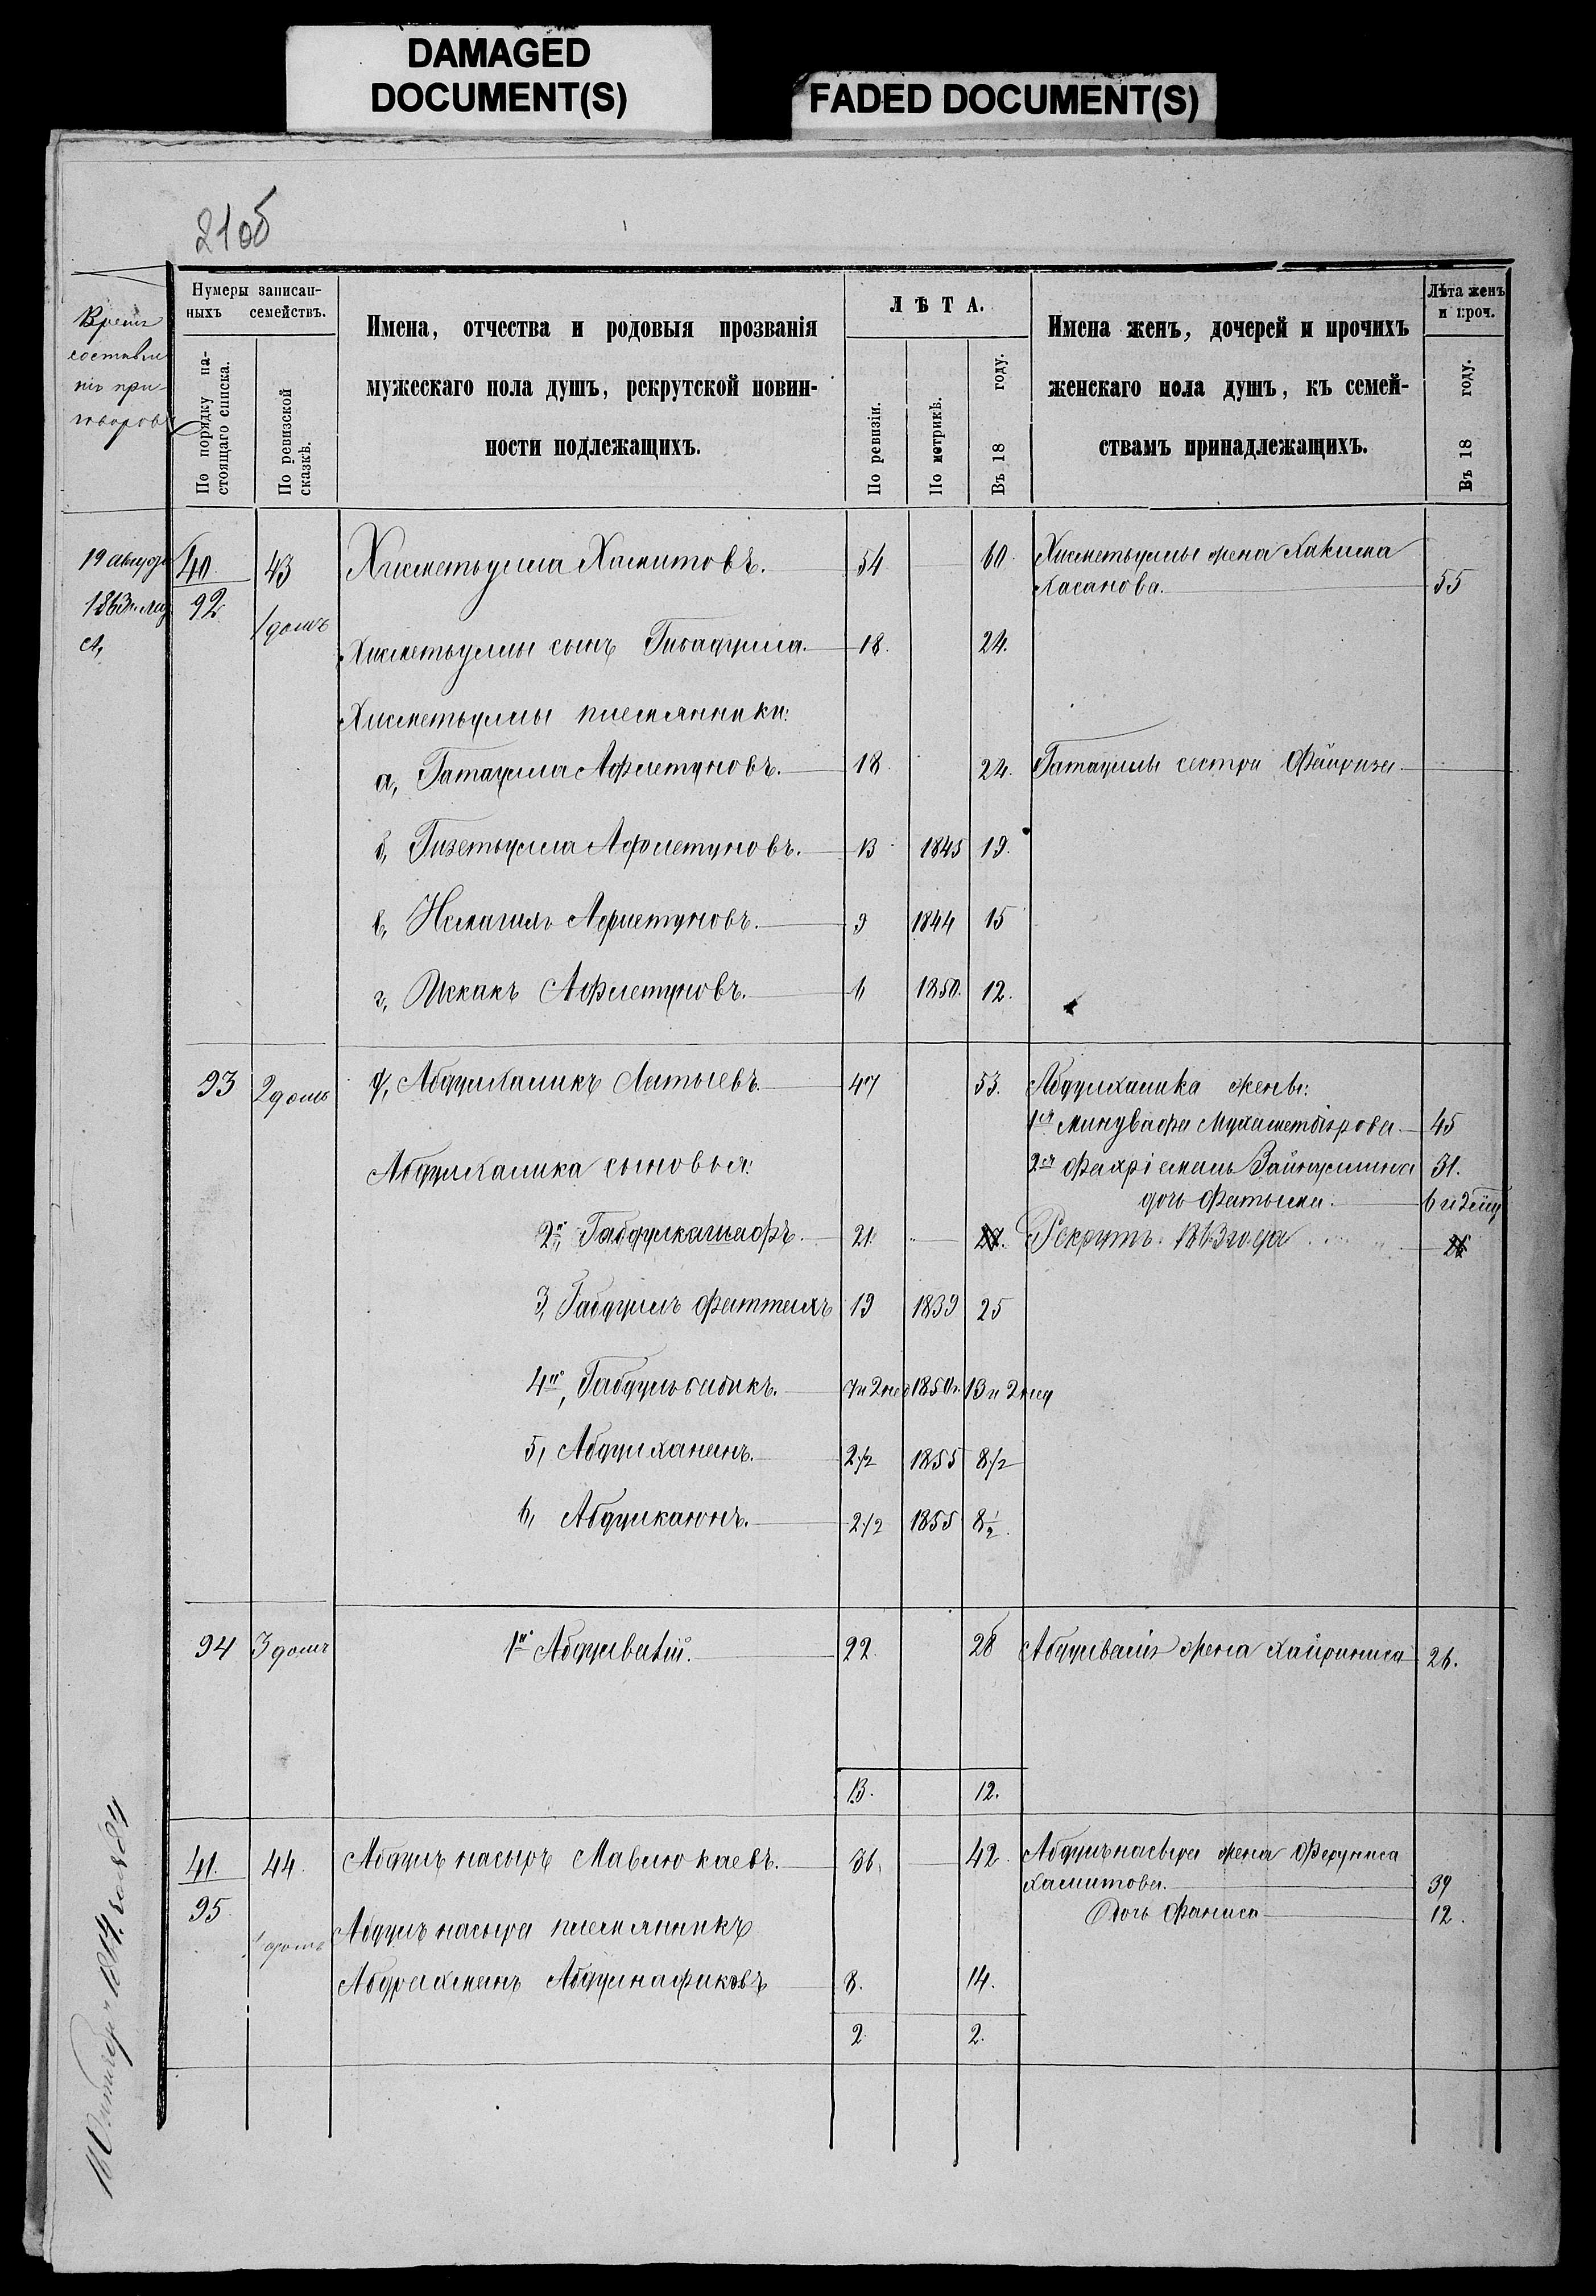 DAMAGED
DOCUMENT(S)
FADED DOCUMENT(S)
210б
Время
составле
нія при-
говоровъ
Нумеры записан-
ныхъ семействъ.
По порядку на-
стоящаго списка.
По ревизской
сказкѣ.
Имена, отчества и родовыя прозванія
мужескаго пола душъ, рекрутской повин-
ности подлежащихъ.
ЛѢТА.
По ревизіи.
По метрикѣ.
Въ 18 году.
Имена женъ, дочерей и прочихъ
женскаго пола душъ, къ семей-
ствамъ принадлежащихъ.
Лѣта женъ
и проч.
Въ 18 году.
19 августа 40 43 Хисметьулла Хамитовъ. 54 60. Хисметьуллы жена Хакима
1863 92 1 домъ Хасанова. 55
Хисметьуллы сынъ Гибадулла. 18. 24.
Хисметьуллы племянники:
а, Гатаулла Афлетуновъ. 18 24. Гатауллы сестра Файруза
б, Гизетьулла Афлетуновъ. 13 1845 19.
в, Исмагилъ Афлетуновъ. 9 1844 15
г, Искакъ Афлетуновъ. 6 1850. 12.
93 2 домъ Абдулхаликъ Латыевъ. 47 53. Абдулхалика жены:
1я Минувафа Мухаметдіярова 45
Абдулхалика сыновья: 2я Фахріемаль Зайнуллина 31.
дочь Фатыма. 6 недѣль
2й, Габдулкашафъ. 21. Рекрутъ 1863 года
3, Габдулъ Фаттахъ 19 1839 25
4й, Габдулъ 7 и 2 нед 1850 13 и 2 нед
5, Абдулханенъ. 2 1/2 1855 8 1/2
6, Абдулкаюнъ. 2 1/2 1855 8 1/2
94 3 домъ 1й Абдулвалій. 22. 28 Абдулвалія жена Хайриниса 26.
13. 12.
41. 44. Абдулъ насыръ Мавлюкаевъ. 36. 42 Абдулънасыра жена Феруниса
Хамитова. 39
95. Дочь Фаниса 12.
1 домъ Абдулъ насыра племянникъ
Абдрахманъ Абдулнафиковъ 8. 14.
2 2.